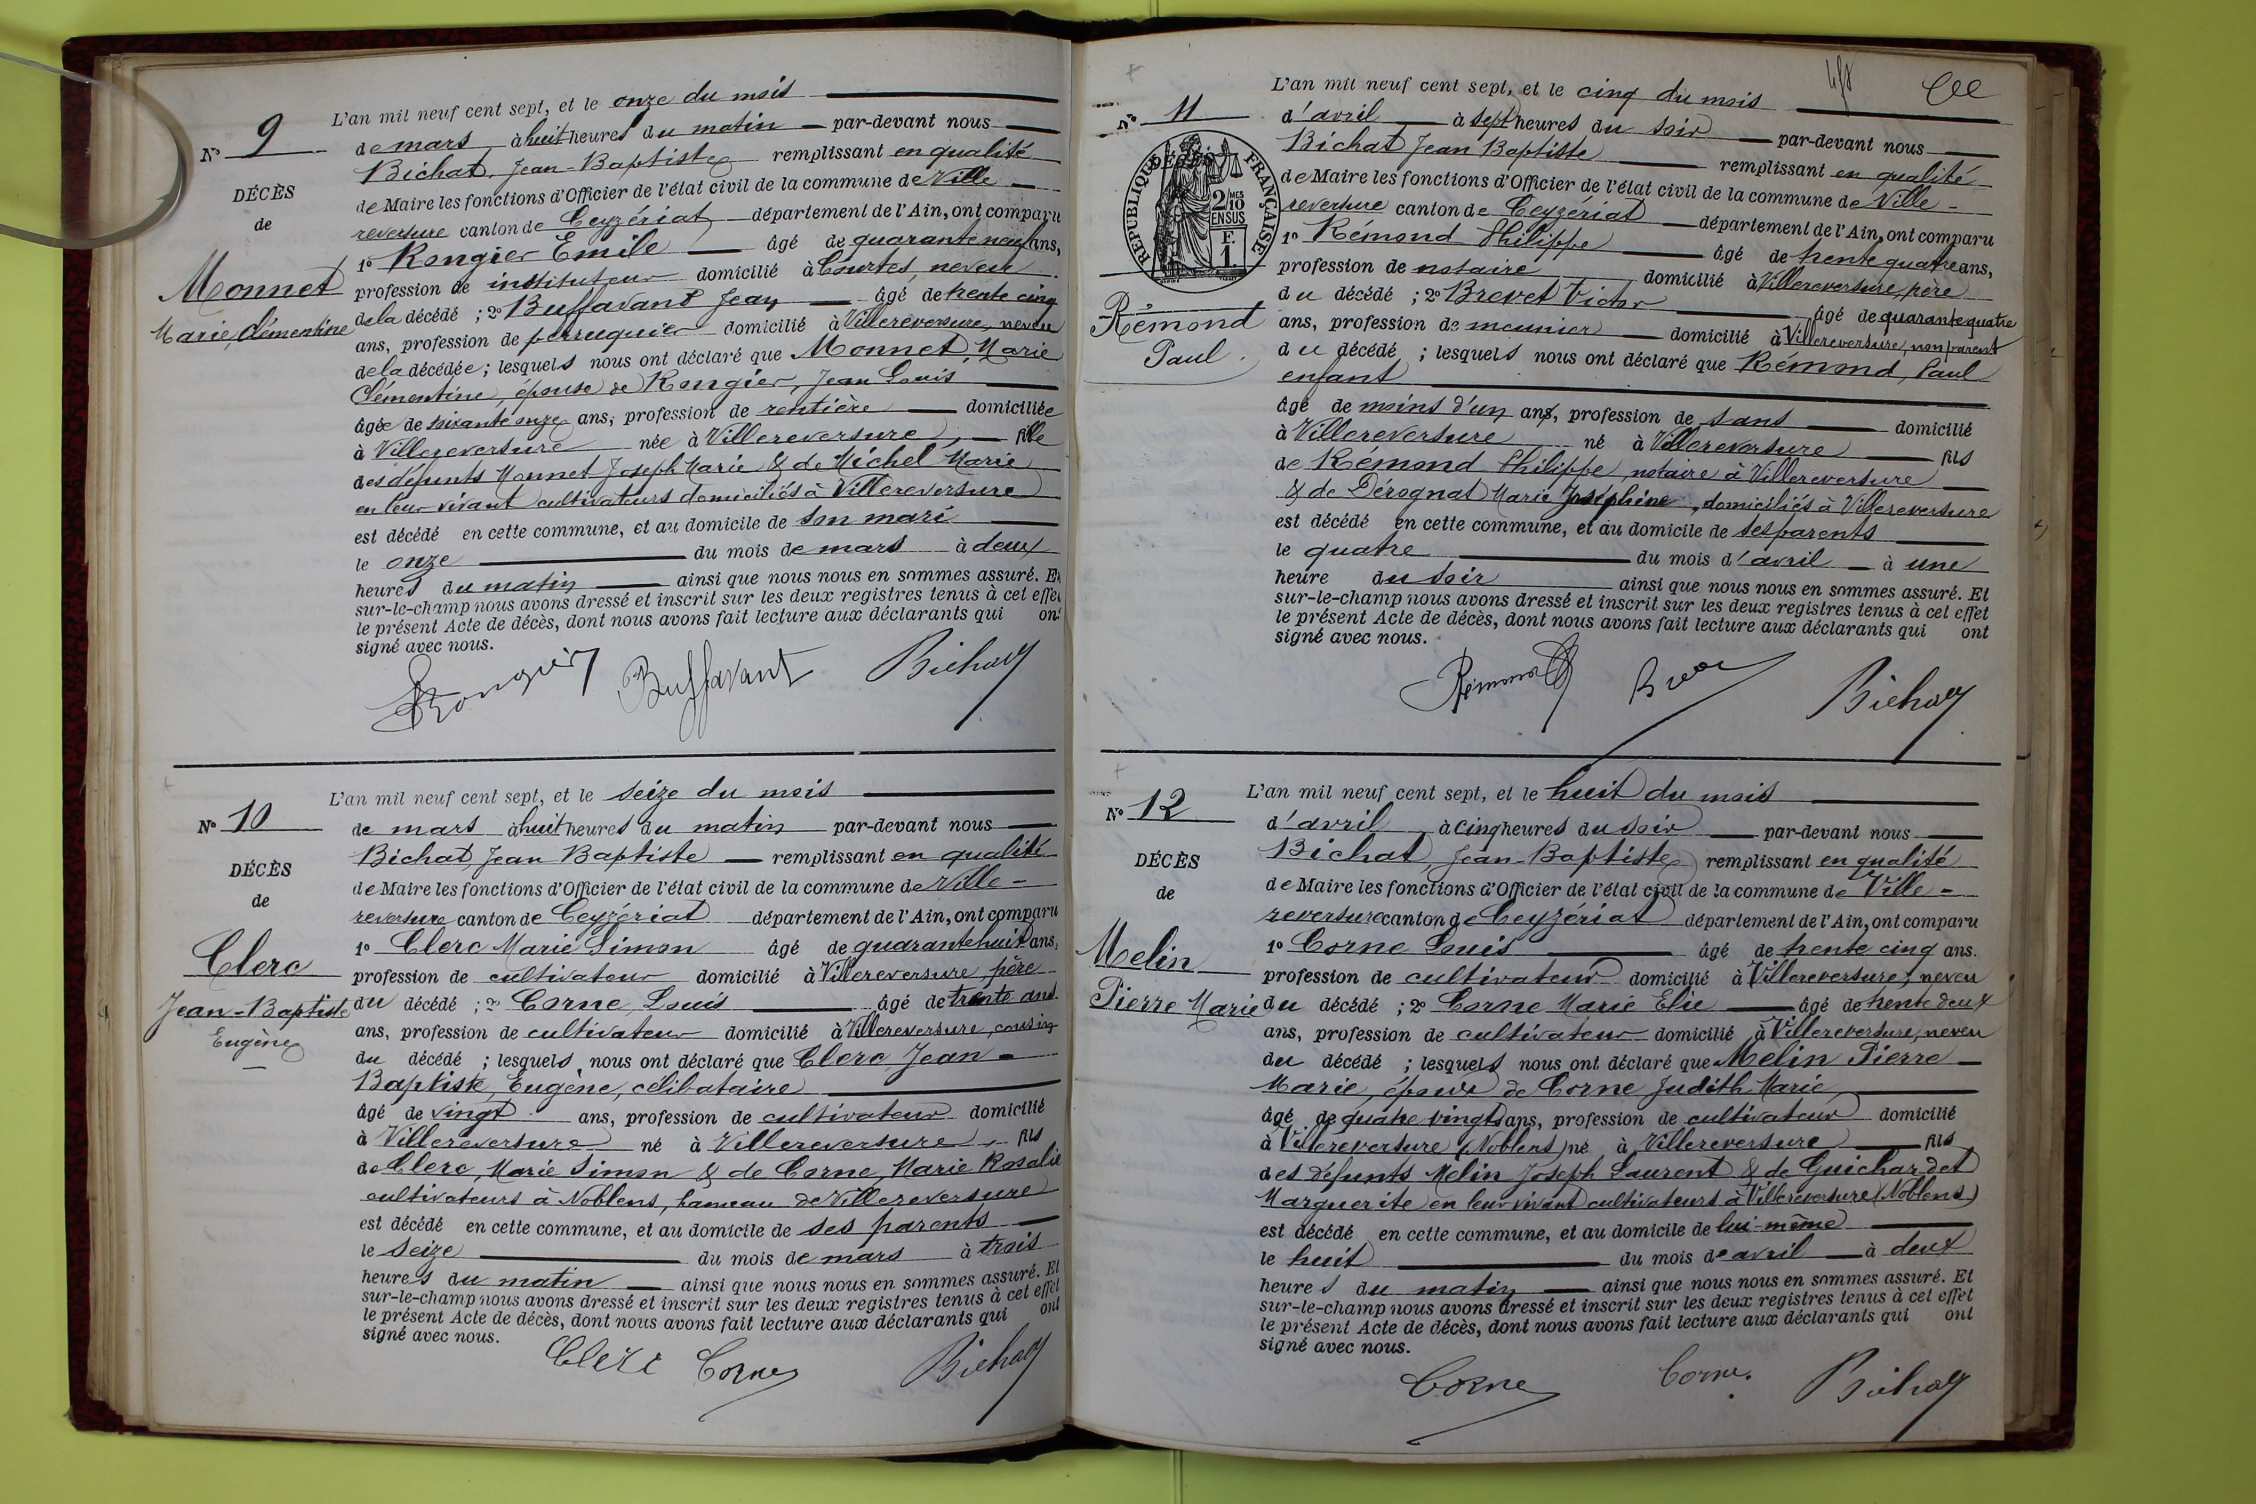 L'an mil neuf cent sept, et le onze du mois
de mars à huit heures du matin par-devant nous
Bichat, Jean-Baptiste remplissant en qualité
de Maire les fonctions d'Officier de l'état civil de la commune de Ville-
reversure canton de Ceyzériat département de l'Ain, ont comparu
1° Rongier Emile âgé de quarante neuf ans,
profession de instituteur domicilié à Courtes, neveu
de la décédé ; 2° Buffavant Jean âgé de trente cinq
ans, profession de perruquier domicilié à Villereversure, neveu
de la décédée ; lesquels nous ont déclaré que Monnet, Marie
Clémentine, épouse de Rongier, Jean Louis
âgée de soixante onze ans, profession de rentière domiciliée
à Villereversure née à Villereversure, fille
des défunts Monnet Joseph Marie & de Michel Marie
en leur vivant cultivateurs domiciliés à Villereversure
est décédé en cette commune, et au domicile de son mari
le onze du mois de mars à deux
heures du matin ainsi que nous nous en sommes assuré. Et
sur-le-champ nous avons dressé et inscrit sur les deux registres tenus à cet effet
le présent Acte de décès, dont nous avons fait lecture aux déclarants qui ont
signé avec nous.
Rongier Buffavant Bichat
N° 9
DÉCÈS
de
Monnet
Marie, Clémentine
L'an mil neuf cent sept, et le seize du mois
de mars à huit heures du matin par-devant nous
Bichat Jean Baptiste remplissant en qualité
de Maire les fonctions d'Officier de l'état civil de la commune de Ville-
reversure canton de Ceyzériat département de l'Ain, ont comparu
1° Clerc Marie Simon âgé de quarante huit ans,
profession de cultivateur domicilié à Villereversure père
du décédé ; 2° Corne, Louis âgé de trente ans
ans, profession de cultivateur domicilié à Villereversure, cousin
du décédé ; lesquels nous ont déclaré que Clerc Jean-
Baptiste, Eugène, célibataire
âgé de vingt ans, profession de cultivateur domicilié
à Villereversure né à Villereversure, fils
de Clerc, Marie Simon & de Corne, Marie Rosalie
cultivateurs à Noblens, hameau de Villereversure
est décédé en cette commune, et au domicile de ses parents
le seize du mois de mars à trois
heures du matin ainsi que nous nous en sommes assuré. Et
sur-le-champ nous avons dressé et inscrit sur les deux registres tenus à cet effet
le présent Acte de décès, dont nous avons fait lecture aux déclarants qui ont
signé avec nous.
Clerc Corne Bichat
N° 10
DÉCÈS
de
Clerc
Jean-Baptiste
Eugène
L'an mil neuf cent sept, et le cinq du mois
d'avril à sept heures du soir par-devant nous
Bichat Jean Baptiste remplissant en qualité
de Maire les fonctions d'Officier de l'état civil de la commune de Ville-
reversure canton de Ceyzériat département de l'Ain, ont comparu
1° Rémond Philippe âgé de trente quatre ans,
profession de notaire domicilié à Villereversure, père
du décédé ; 2° Brevet Victor âgé de quarante quatre
ans, profession de meunier domicilié à Villereversure, non parent
du décédé ; lesquels nous ont déclaré que Rémond, Paul
enfant
âgé de moins d'un ans, profession de sans domicilié
à Villereversure né à Villereversure fils
de Rémond Philippe, notaire à Villereversure
& de Dérognat Marie Joséphine, domiciliés à Villereversure
est décédé en cette commune, et au domicile de ses parents
le quatre du mois d'avril à une
heure du soir ainsi que nous nous en sommes assuré. Et
sur-le-champ nous avons dressé et inscrit sur les deux registres tenus à cet effet
le présent Acte de décès, dont nous avons fait lecture aux déclarants qui ont
signé avec nous.
Rémond Bichat
N° 11
RÉPUBLIQUE FRANÇAISE
2/10 EN SUS
F. 1
Rémond
Paul
L'an mil neuf cent sept, et le huit du mois
d'avril à cinq heures du soir par-devant nous
Bichat, Jean-Baptiste remplissant en qualité
de Maire les fonctions d'Officier de l'état civil de la commune de Ville-
reversure canton de Ceyzériat département de l'Ain, ont comparu
1° Corne Louis âgé de trente cinq ans.
profession de cultivateur domicilié à Villereversure, neveu
du décédé ; 2° Corne Marie Elie âgé de trente deux
ans, profession de cultivateur domicilié à Villereversure, neveu
du décédé ; lesquels nous ont déclaré que Melin Pierre
Marie, époux de Corne Judith Marie
âgé de quatre vingts ans, profession de cultivateur domicilié
à Villereversure (Noblens) né à Villereversure fils
des défunts Melin Joseph Laurent & de Guichardet
Marguerite en leur vivant cultivateurs à Villereversure (Noblens)
est décédé en cette commune, et au domicile de lui-même
le huit du mois de avril à deux
heures du matin ainsi que nous nous en sommes assuré. Et
sur-le-champ nous avons dressé et inscrit sur les deux registres tenus à cet effet
le présent Acte de décès, dont nous avons fait lecture aux déclarants qui ont
signé avec nous.
Corne Corne. Bichat
N° 12
DÉCÈS
de
Melin
Pierre Marie